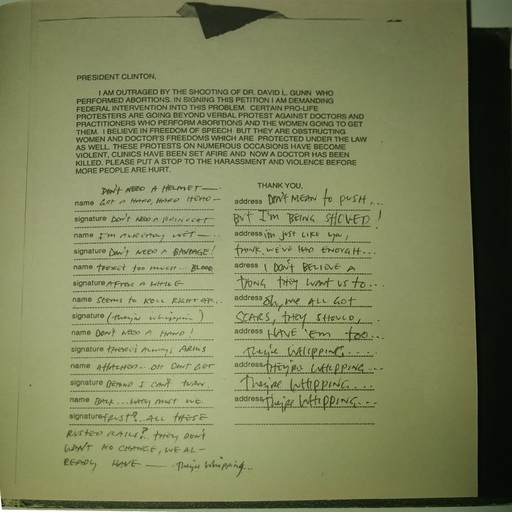 PRESIDENT CLINTON,
I AM OUTRAGED BY THE SHOOTING OF DR. DAVID L. GUNN WHO
PERFORMED ABORTIONS. IN SIGNING THIS PETITION I AM DEMANDING
FEDERAL INTERVENTION INTO THIS PROBLEM. CERTAIN PRO-LIFE
PROTESTERS ARE GOING BEYOND VERBAL PROTEST AGAINST DOCTORS AND
PRACTITIONERS WHO PERFORM ABORTIONS AND THE WOMEN GOING TO GET
THEM. I BELIEVE IN FREEDOM OF SPEECH BUT THEY ARE OBSTRUCTING
WOMEN AND DOCTOR'S FREEDOMS WHICH ARE PROTECTED UNDER THE LAW
AS WELL. THESE PROTESTS ON NUMEROUS OCCASIONS HAVE BECOME
VIOLENT, CLINICS HAVE BEEN SET AFIRE AND NOW A DOCTOR HAS BEEN
KILLED. PLEASE PUT A STOP TO THE HARASSMENT AND VIOLENCE BEFORE
MORE PEOPLE ARE HURT.
THANK YOU,
DON'T NEED A HELMET —
name GOT A HARD, HARD HEAD —
signature DON'T NEED A RAINCOAT
name I'M ALREADY WET —
signature DON'T NEED A BANDAGE!
name THERE'S TOO MUCH... BLOOD
signature AFTER A WHILE
name SEEMS TO ROLL RIGHT OFF...
signature (They're whippin')
name DON'T NEED A HAND!
signature THERE'S ALWAYS ARMS
name ATTACHED... OH DON'T GET
signature BEHIND I CAN'T TURN
name BACK... WHY MUST WE
signature TRUST?.. ALL THESE
RUSTED RAILS?. THEY DON'T
WANT NO CHANGE, WE AL-
READY HAVE — They're Whipping...
address DON'T MEAN TO PUSH...
BUT I'M BEING SHOVED!
address i'm just like you,
THINK WE'VE HAD ENOUGH...
adress I DON'T BELIEVE A
THING THEY WANT US TO...
address Oh, we ALL GOT
SCARS, THEY SHOULD,
address HAVE 'EM TOO...
They're WHIPPING....
address THEY'RE WHIPPING...
They're WHIPPING...
address They're WHIPPING...